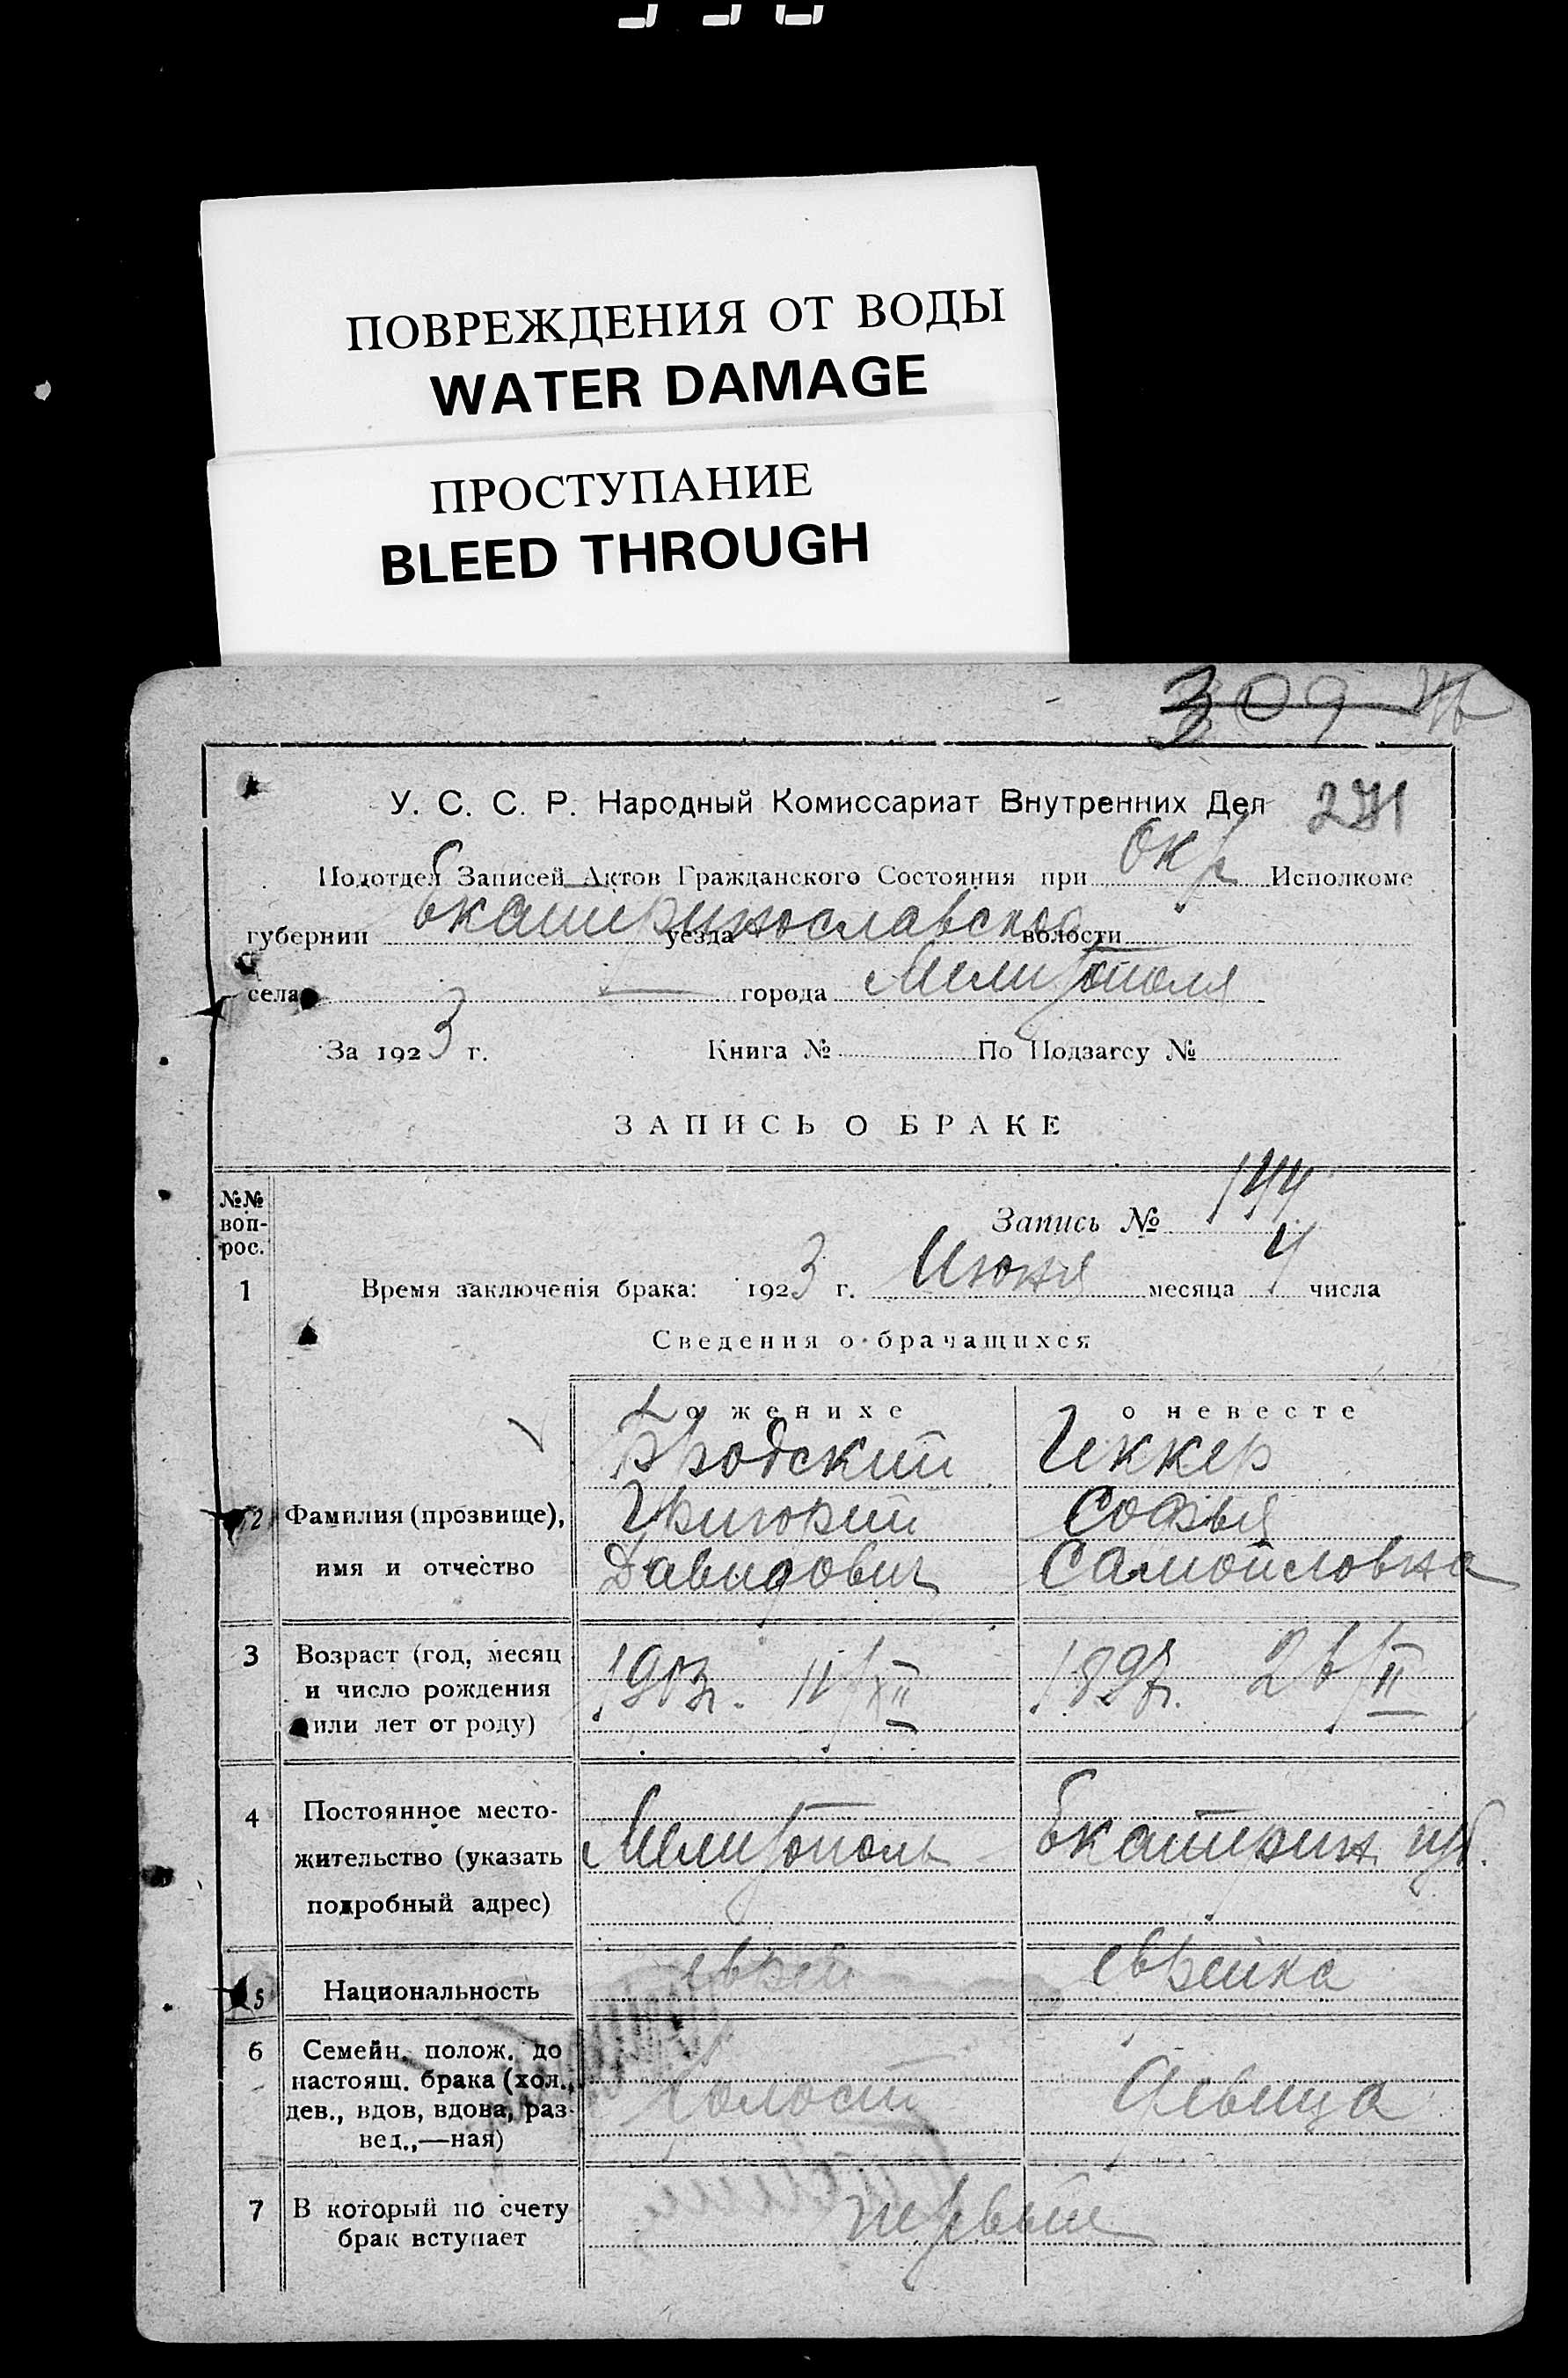 ПОВРЕЖДЕНИЯ ОТ ВОДЫ
WATER DAMAGE
ПРОСТУПАНИЕ
BLEED THROUGH
309
271
У. С. С. Р. Народный Комиссариат Внутренних Дел
Подотдел Записей Актов Гражданского Состояния при Окр Исполкоме
губернии Екатеринославской уезда волости
села — города Мелитополя
За 1923 г. Книга № По Подзагсу №
ЗАПИСЬ О БРАКЕ
№№ воп-рос.
Запись № 144
1 Время заключенія брака: 1923 г. Июня месяца 4 числа
Сведения о брачащихся
о женихе о невесте
Бродский Геккер
2 Фамилия (прозвище), Григорий Софья
имя и отчество Давидович Самойловна
3 Возраст (год, месяц
и число рождения 1903г. 11/XII 1897г. 26/II
или лет от роду)
4 Постоянное место-
жительство (указать Мелитополь Екатерин. губ.
подробный адрес)
5 Национальность еврей еврейка
6 Семейн. полож. до
настоящ. брака (хол., холост девица
дев., вдов, вдова, раз-
вед.,—ная)
7 В который по счету первый
брак вступает